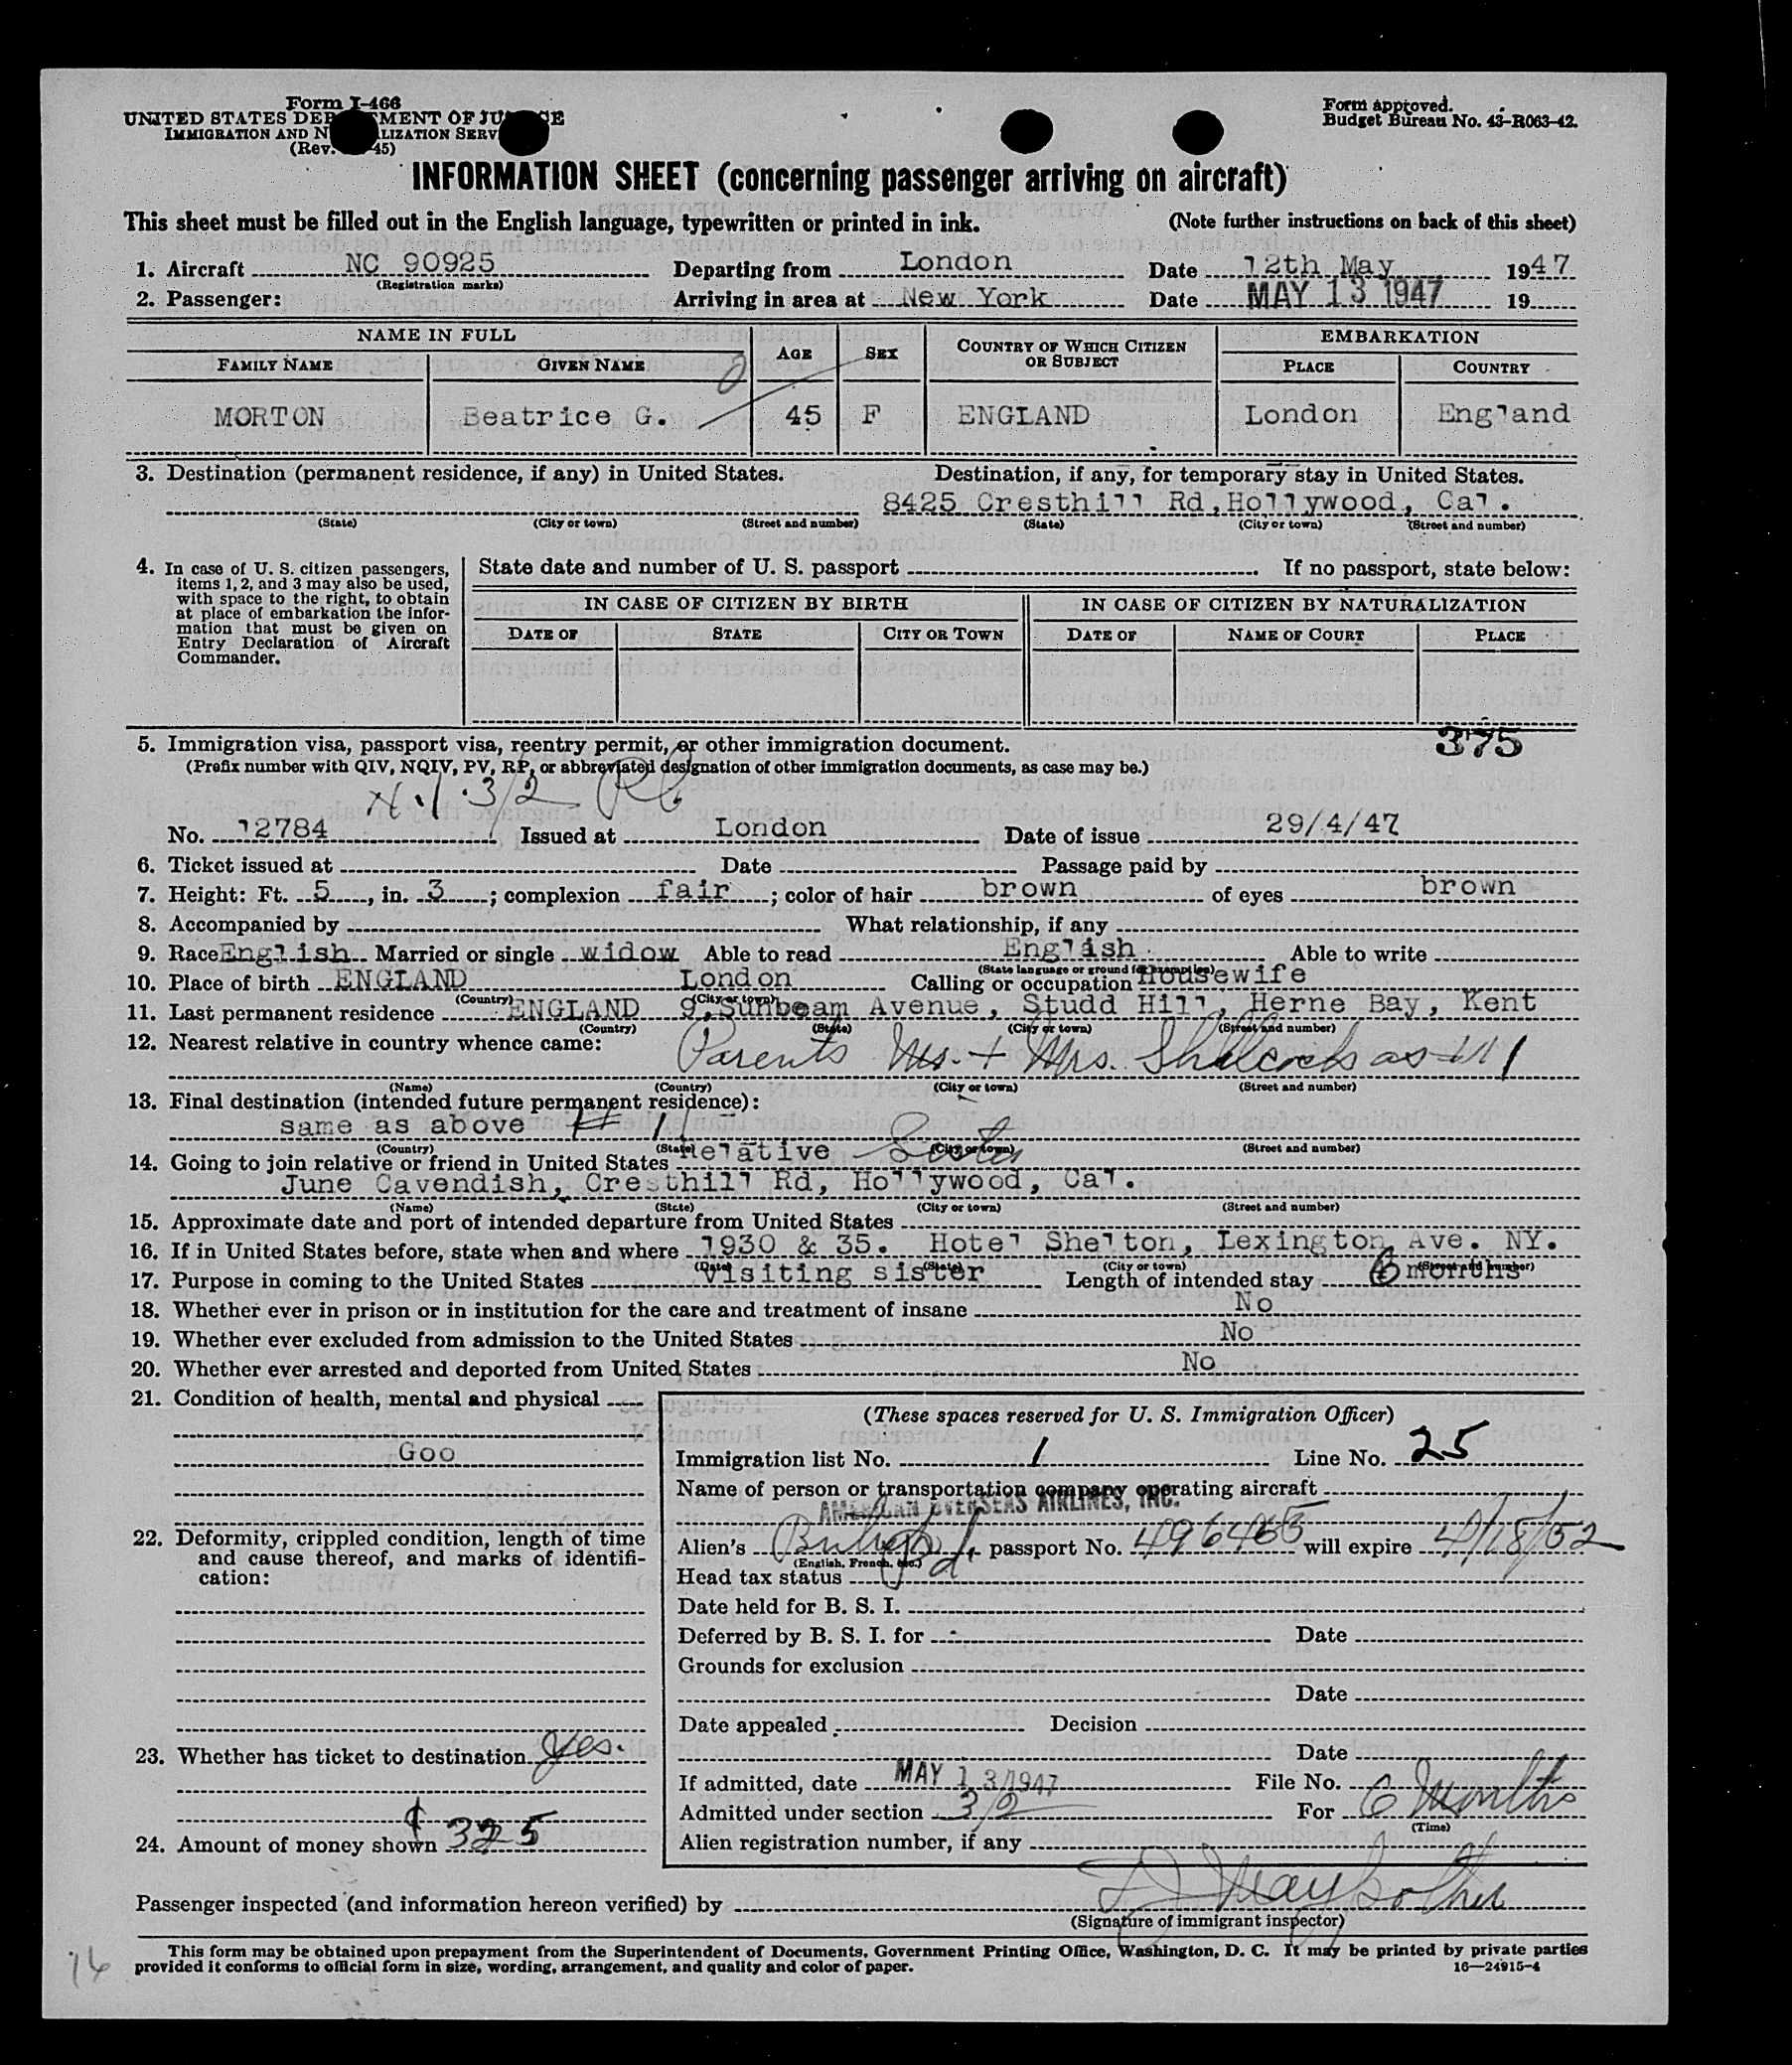 Form I-466
UNITED STATES DEP MENT OF JU CE
IMMIGRATION AND N LIZATION SERV
(Rev. 45)
Form approved.
Budget Bureau No. 43-R063-42.
INFORMATION SHEET (concerning passenger arriving on aircraft)
This sheet must be filled out in the English language, typewritten or printed in ink. (Note further instructions on back of this sheet)
1. Aircraft NC 90925 Departing from London Date 12th May 1947
(Registration marks)
2. Passenger: Arriving in area at New York Date MAY 13 1947 19
NAME IN FULL AGE SEX COUNTRY OF WHICH CITIZEN OR SUBJECT EMBARKATION
FAMILY NAME GIVEN NAME PLACE COUNTRY
MORTON Beatrice G. 45 F ENGLAND London England
3. Destination (permanent residence, if any) in United States. Destination, if any, for temporary stay in United States.
8425 Cresthill Rd, Hollywood, Cal.
(State) (City or town) (Street and number) (State) (City or town) (Street and number)
4. In case of U. S. citizen passengers,
items 1, 2, and 3 may also be used,
with space to the right, to obtain
at place of embarkation the infor-
mation that must be given on
Entry Declaration of Aircraft
Commander.
State date and number of U. S. passport If no passport, state below:
IN CASE OF CITIZEN BY BIRTH IN CASE OF CITIZEN BY NATURALIZATION
DATE OF STATE CITY OR TOWN DATE OF NAME OF COURT PLACE
375
5. Immigration visa, passport visa, reentry permit, or other immigration document.
(Prefix number with QIV, NQIV, PV, RP, or abbreviated designation of other immigration documents, as case may be.)
3/2
No. 12784 Issued at London Date of issue 29/4/47
6. Ticket issued at Date Passage paid by
7. Height: Ft. 5, in. 3; complexion fair; color of hair brown of eyes brown
8. Accompanied by What relationship, if any
9. Race English Married or single widow Able to read English Able to write
(State language or ground for exemption)
10. Place of birth ENGLAND London Calling or occupation Housewife
(Country) (City or town)
11. Last permanent residence ENGLAND 9, Sunbeam Avenue, Studd Hill, Herne Bay, Kent
(Country) (State) (City or town) (Street and number)
12. Nearest relative in country whence came: Parents Mr. + Mrs. as 11
(Name) (Country) (City or town) (Street and number)
13. Final destination (intended future permanent residence):
same as above # 11
(Country) (State) (City or town) (Street and number)
14. Going to join relative or friend in United States Relative Sister
June Cavendish, Cresthill Rd, Hollywood, Cal.
(Name) (State) (City or town) (Street and number)
15. Approximate date and port of intended departure from United States
16. If in United States before, state when and where 1930 & 35. Hotel Shelton, Lexington Ave. NY.
(Date) (State) (City or town) (Street and number)
17. Purpose in coming to the United States Visiting sister Length of intended stay 6 months
18. Whether ever in prison or in institution for the care and treatment of insane No
19. Whether ever excluded from admission to the United States No
20. Whether ever arrested and deported from United States No
21. Condition of health, mental and physical
Goo
22. Deformity, crippled condition, length of time
and cause thereof, and marks of identifi-
cation:
23. Whether has ticket to destination yes.
24. Amount of money shown $ 325
(These spaces reserved for U. S. Immigration Officer)
Immigration list No. 1 Line No. 25
Name of person or transportation company operating aircraft
AMERICAN OVERSEAS AIRLINES, INC.
Alien's British passport No. 496465 will expire 4/18/52
(English, French, etc.)
Head tax status
Date held for B. S. I.
Deferred by B. S. I. for Date
Grounds for exclusion
Date
Date appealed Decision
Date
If admitted, date MAY 13 1947 File No.
Admitted under section 3/2 For 6 Months
(Time)
Alien registration number, if any
Passenger inspected (and information hereon verified) by
(Signature of immigrant inspector)
This form may be obtained upon prepayment from the Superintendent of Documents, Government Printing Office, Washington, D. C. It may be printed by private parties
provided it conforms to official form in size, wording, arrangement, and quality and color of paper. 16—24915-4
16